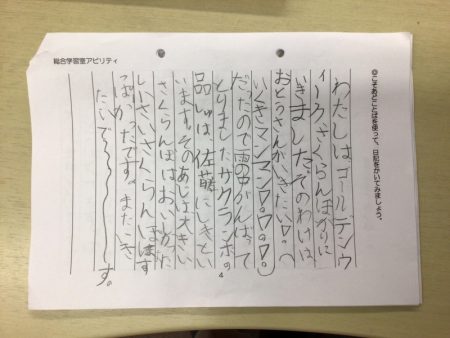 ◎こそあどことばを使って、日記をかいてみましょう。
わたしはゴールデンウ
ィーク、さくらんぼがりに
いきました。そのわけは
おとうさんがいきたい！！へ
いくぞマンマン！！！！
だったので雨の中がんばって
とりましたサクランボの
品しゅは、佐藤にしきとい
います。そのあじは大きい
さくらんぼはおいしかった
しいさいさくらんぼはす
っぱかったです。またいき
たいで〜〜〜〜す。
総合学習室アビリティ
4